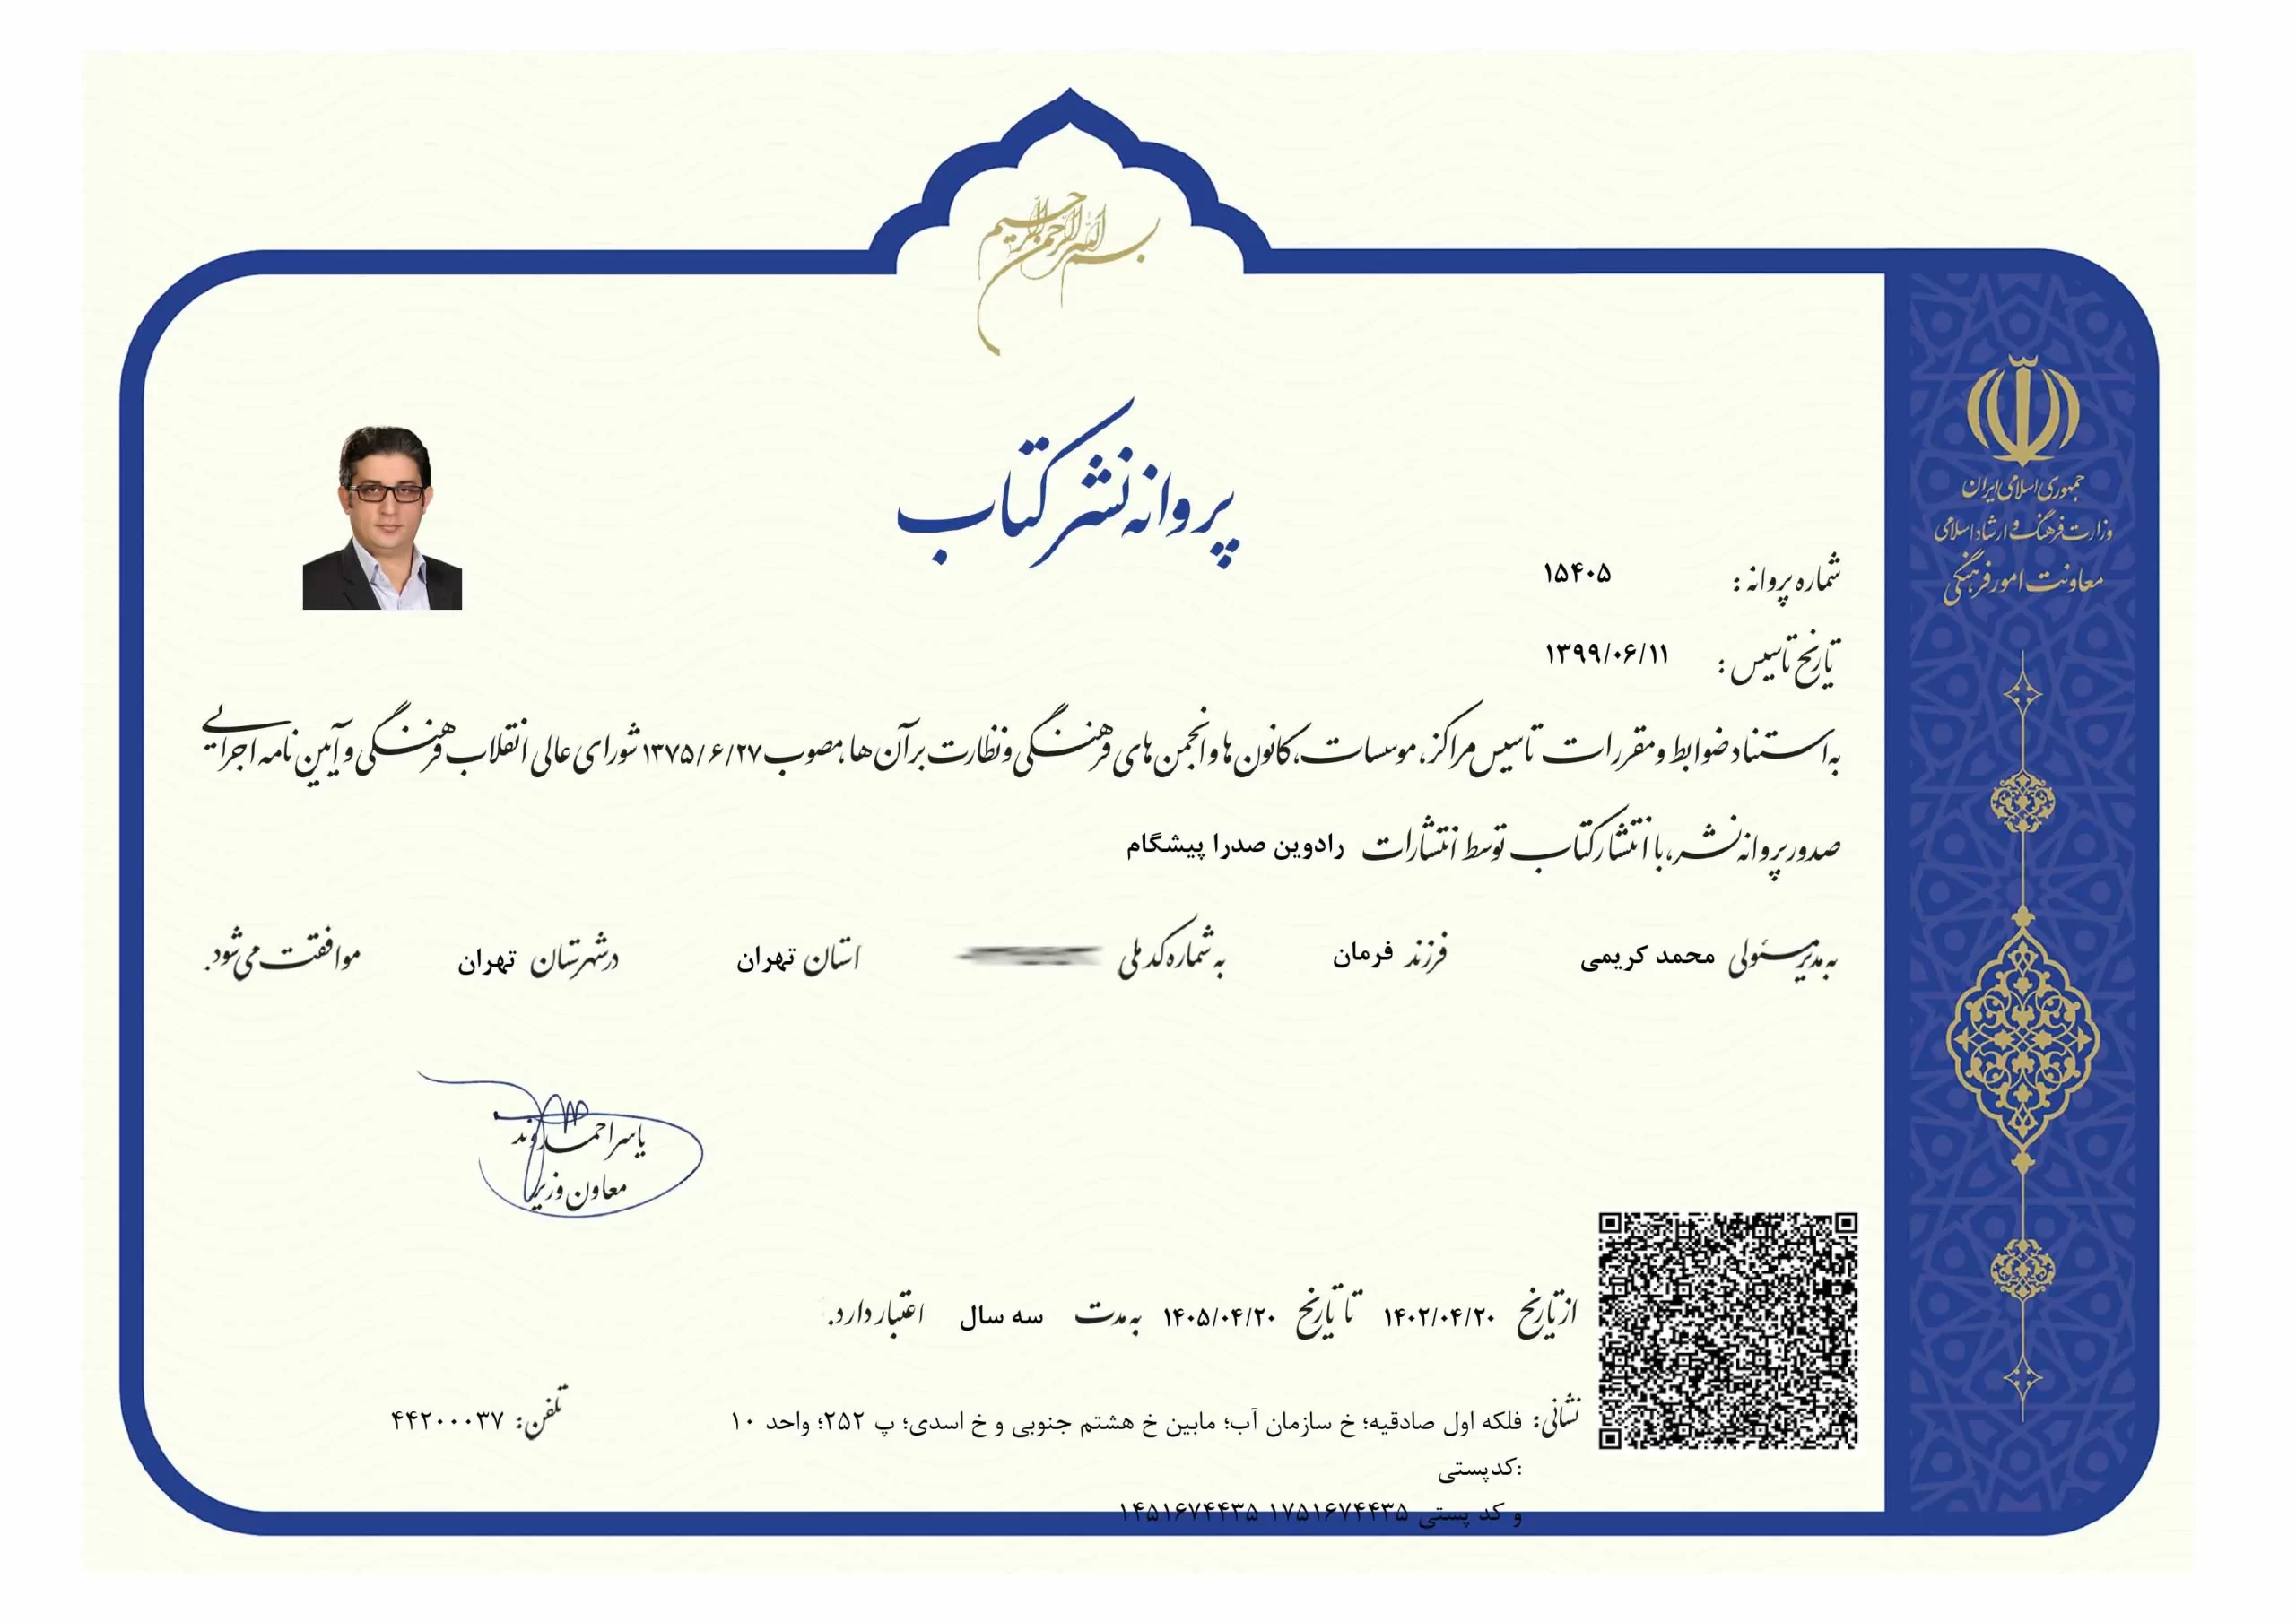 بسم الله الرحمن الرحیم
جمهوری اسلامی ایران
وزارت فرهنگ و ارشاد اسلامی
معاونت امور فرهنگی
پروانه نشر کتاب
شماره پروانه : ۱۵۴۰۵
تاریخ تاسیس : ۱۳۹۹/۰۶/۱۱
به استناد ضوابط و مقررات تاسیس مراکز، موسسات، کانون ها و انجمن های فرهنگی و نظارت بر آن ها، مصوب ۱۳۷۵/۶/۲۷ شورای عالی انقلاب فرهنگی و آیین نامه اجرایی
صدور پروانه نشر، با انتشار کتاب توسط انتشارات رادوین صدرا پیشگام
به مدیرمسئولی محمد کریمی فرزند فرمان به شماره کد ملی استان تهران درشهرستان تهران موافقت می شود.
یاسر احمدوند
معاون وزیر
از تاریخ ۱۴۰۲/۰۴/۲۰ تا تاریخ ۱۴۰۵/۰۴/۲۰ به مدت سه سال اعتبار دارد.
نشانی: فلکه اول صادقیه؛ خ سازمان آب؛ مابین خ هشتم جنوبی و خ اسدی؛ پ ۲۵۲؛ واحد ۱۰ تلفن: ۴۴۲۰۰۰۳۷
:کدپستی
و کد پستی ۱۷۵۱۶۷۴۴۳۵ ۱۴۵۱۶۷۴۴۳۵